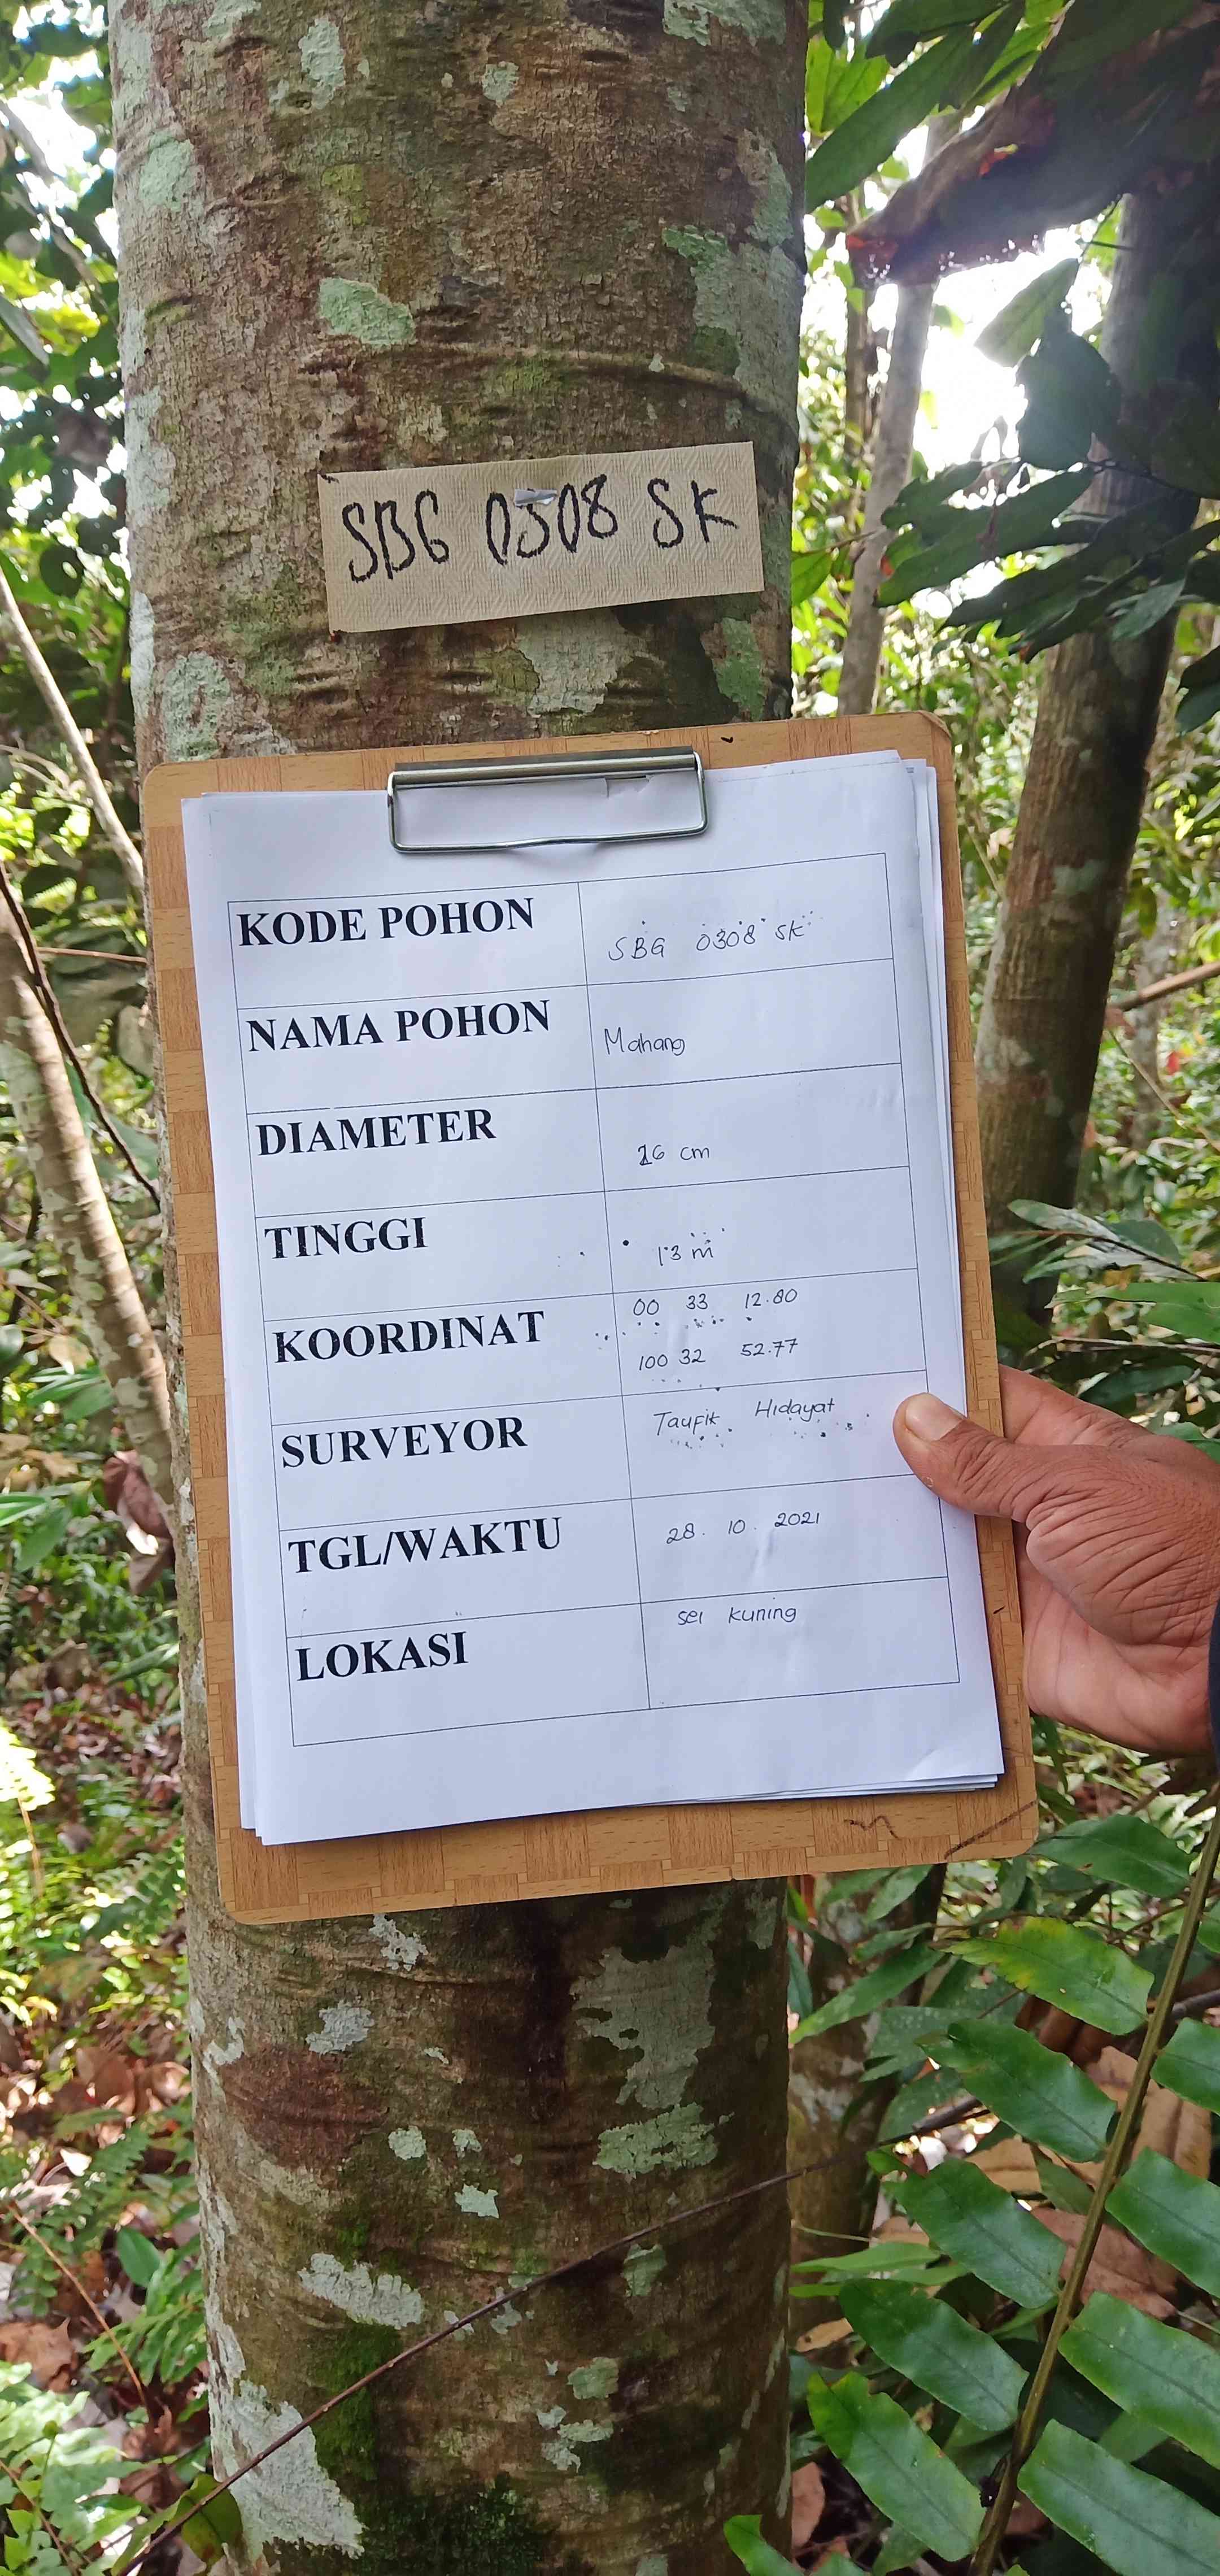 SBG 0308 SK
KODE POHON SBG 0308 SK
NAMA POHON Mahang
DIAMETER 26 cm
TINGGI 13 m
KOORDINAT 00 33 12.80
100 32 52.77
SURVEYOR Taufik Hidayat
TGL/WAKTU 28. 10. 2021
LOKASI sei kuning